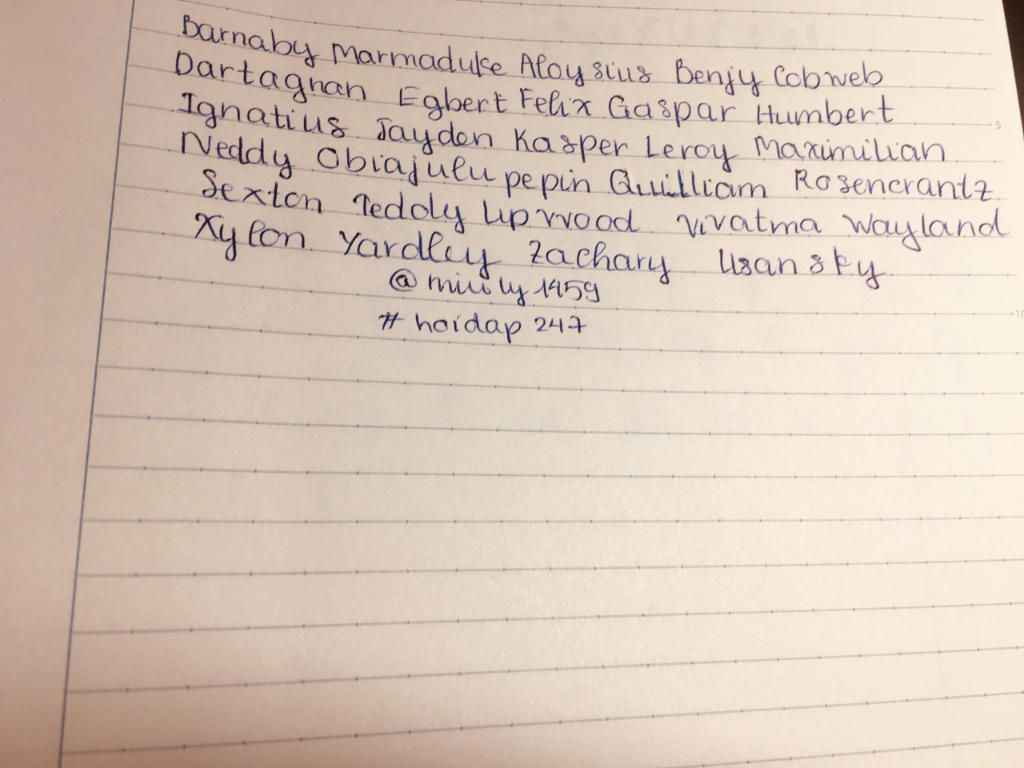 Barnaby Marmaduke Aloysius Benjy Cobweb
Dartagnan Egbert Felix Gaspar Humbert
Ignatius Jayden Kasper Leroy Maximilian
Neddy Obiajulu pepin Quilliam Rosencrantz
Sexton Teddy Upwood Vivatma Wayland
Xylon Yardley Zachary Usansky
1459
# hoidap 247
5
10